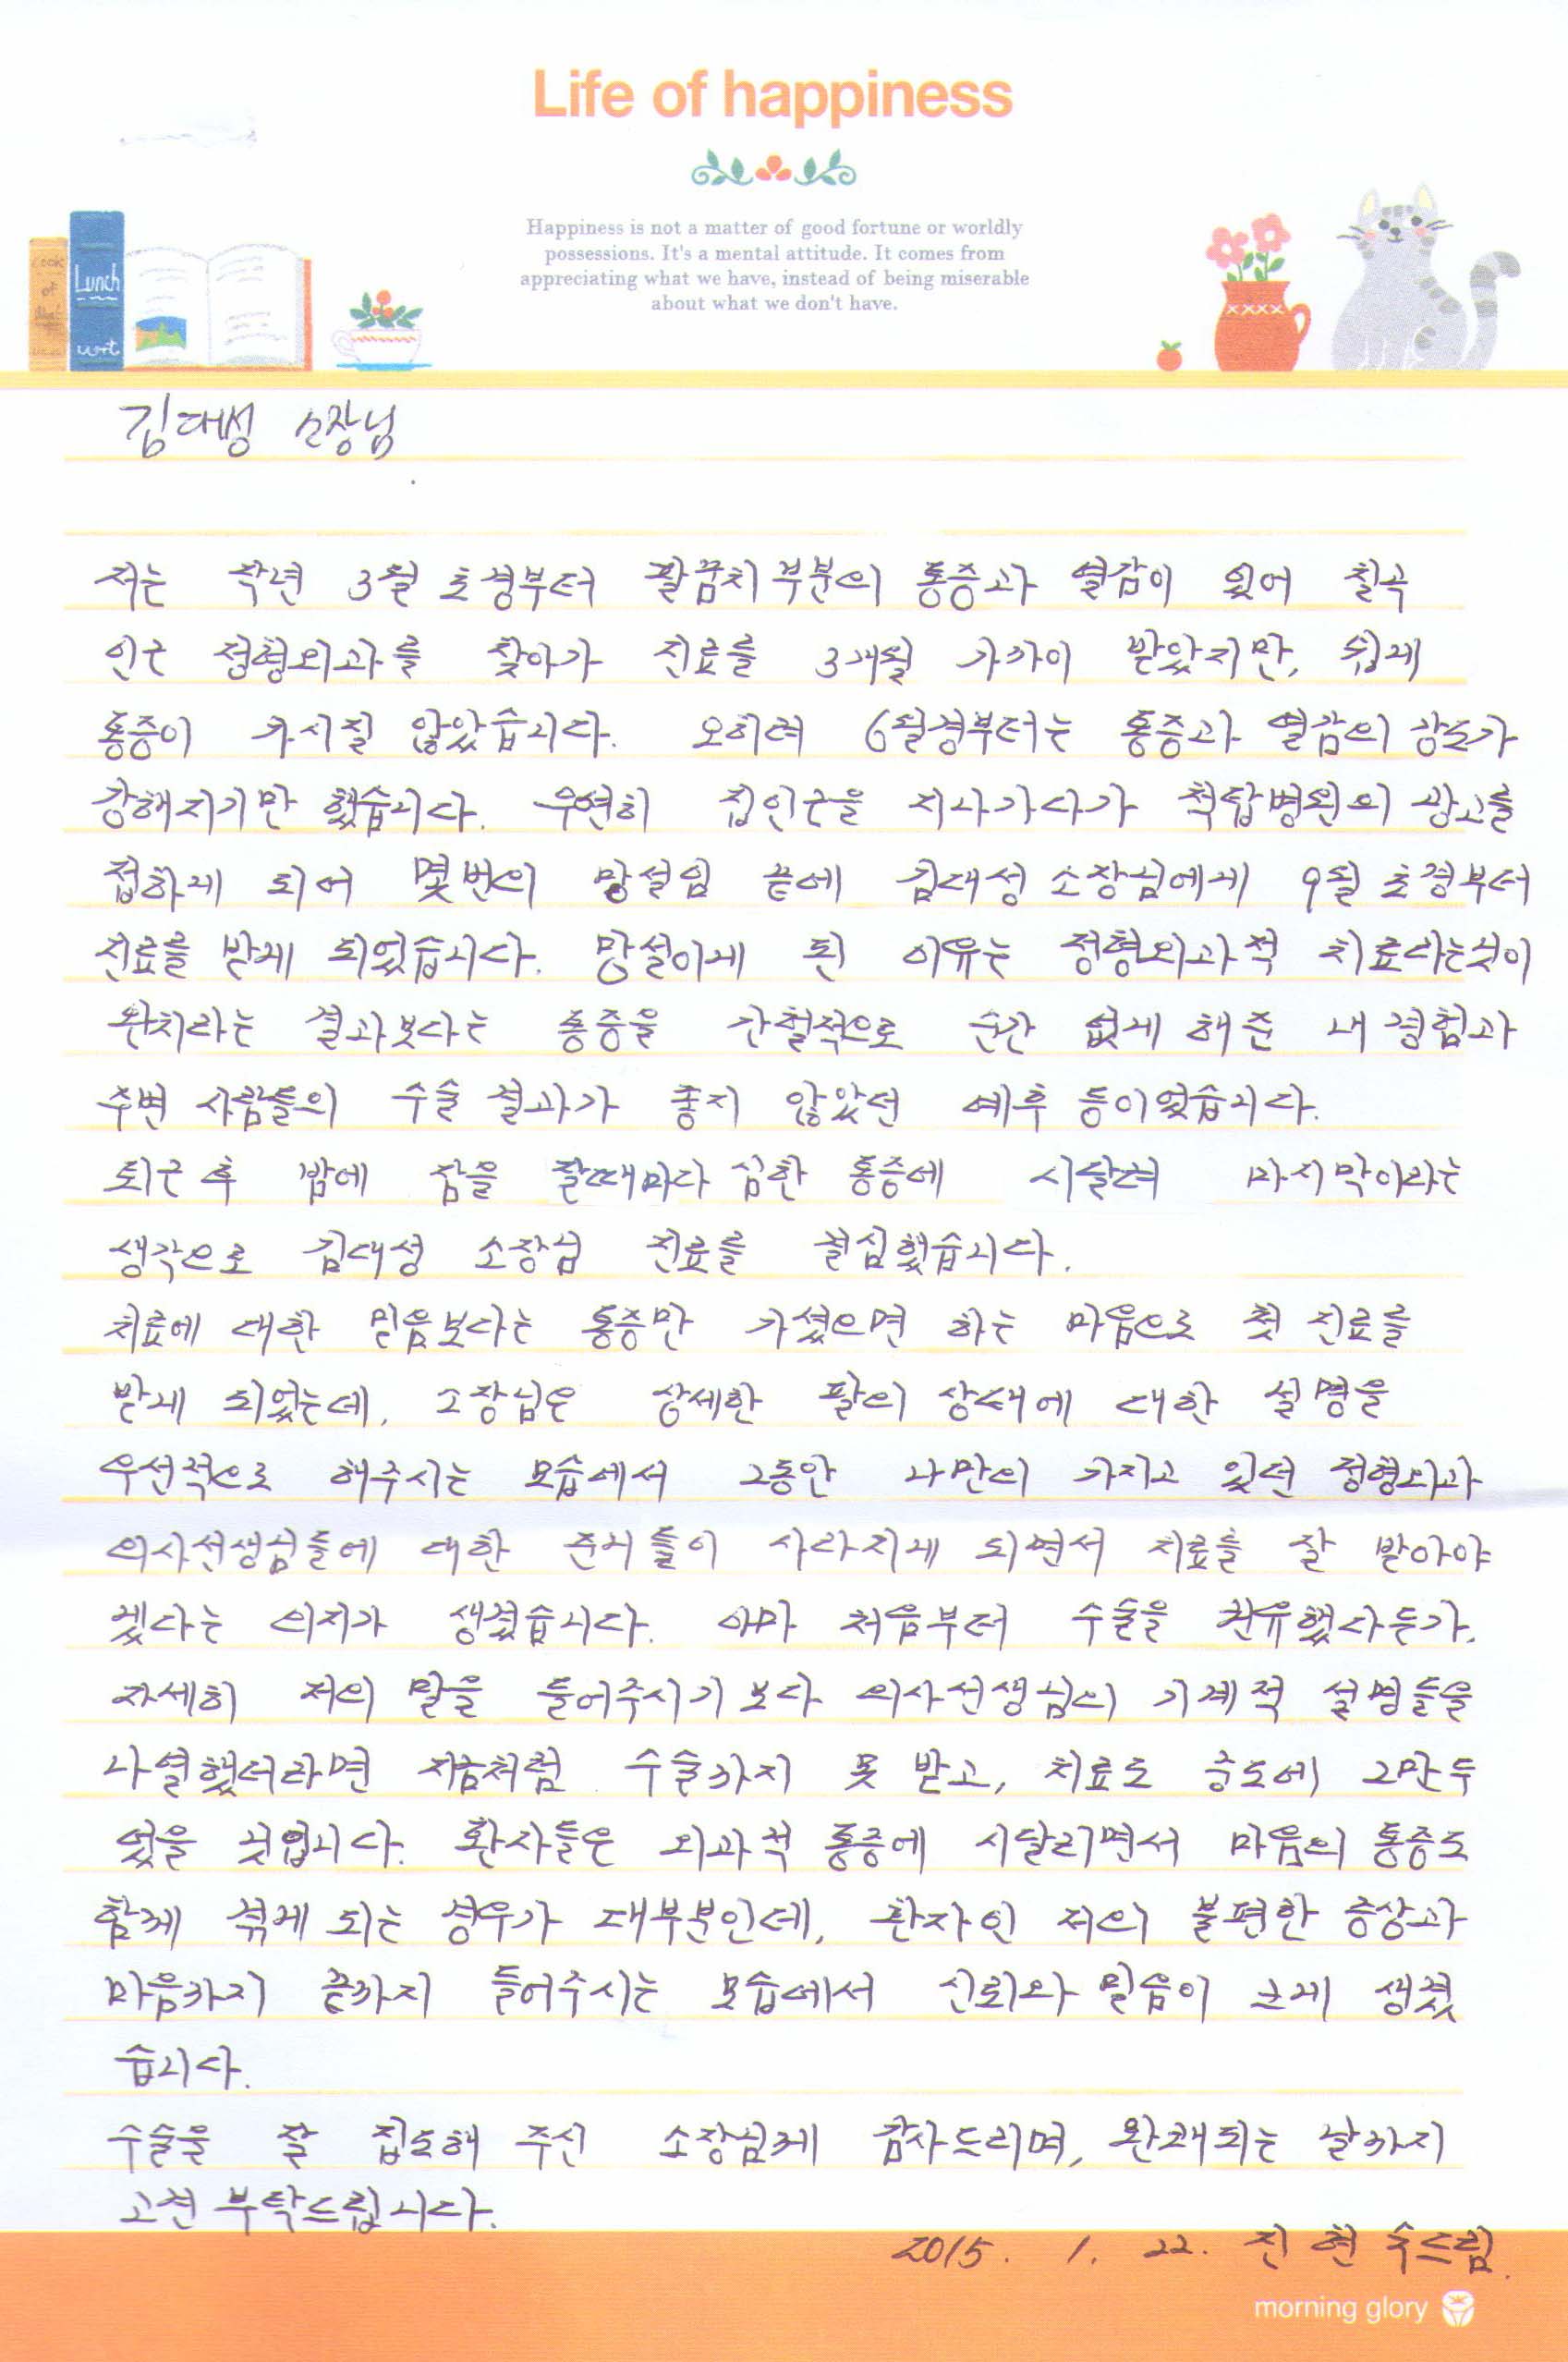 Life of happiness
Happiness is not a matter of good fortune or worldly
possessions. It's a mental attitude. It comes from
appreciating what we have, instead of being miserable
about what we don't have.
Cook
of
Lunch
김대성 소장님
저는 작년 3월 초경부터 팔꿈치 부분의 통증과 열감이 있어 칠곡
인근 정형외과를 찾아가 진료를 3개월 가까이 받았지만, 쉽게
통증이 가시질 않았습니다. 오히려 6월경부터는 통증과 열감의 강도가
강해지기만 했습니다. 우연히 집인근을 지나가다가 척탑병원의 광고를
접하게 되어 몇번의 망설임 끝에 김대성 소장님에게 9월 초경부터
진료를 받게 되었습니다. 망설이게 된 이유는 정형외과적 치료라는것이
완치라는 결과보다는 통증을 간헐적으로 순간 없게 해준 내 경험과
주변 사람들의 수술 결과가 좋지 않았던 예후 등이었습니다.
퇴근 후 밤에 잠을 잘때마다 심한 통증에 시달려 마지막이라는
생각으로 김대성 소장님 진료를 결심했습니다.
치료에 대한 믿음보다는 통증만 가셨으면 하는 마음으로 첫 진료를
받게 되었는데, 소장님은 상세한 팔의 상태에 대한 설명을
우선적으로 해주시는 모습에서 그동안 나만의 가지고 있던 정형외과
의사선생님들에 대한 사라지게 되면서 치료를 잘 받아야
겠다는 의지가 생겼습니다. 아마 처음부터 수술을 권유했다든가,
자세히 저의 말을 들어주시기 보다 의사선생님의 기계적 설명들을
나열했더라면 지금처럼 수술까지 못 받고, 치료도 중도에 그만두
었을 것입니다. 환자들은 외과적 통증에 시달리면서 마음의 통증도
함께 겪게 되는 경우가 대부분인데, 환자인 저의 불편한 증상과
마음까지 끝까지 들어주시는 모습에서 신뢰와 믿음이 크게 생겼
습니다.
수술을 잘 집도해 주신 소장님께 감사드리며, 완쾌되는 날까지
고견 부탁드립니다.
2015. 1. 22. 진현숙드림.
morning glory